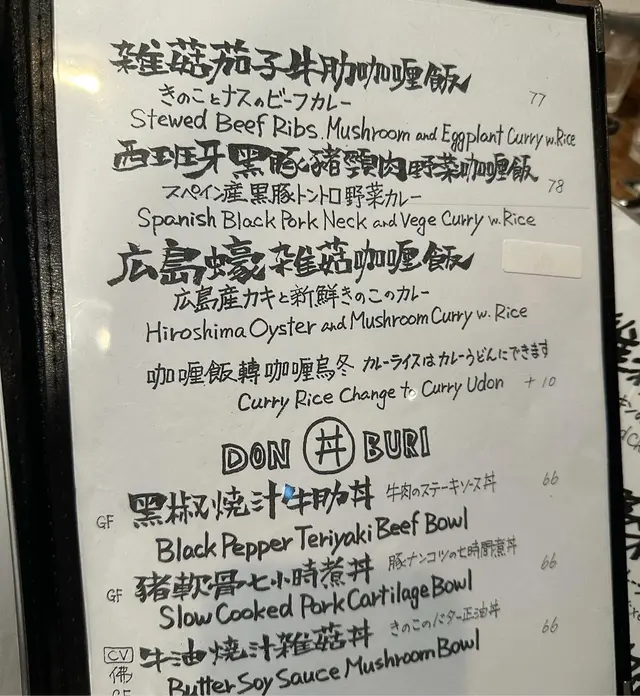 雑菇茄子牛肋咖喱飯
きのことナスのビーフカレー 77
Stewed Beef Ribs. Mushroom and Eggplant Curry w. Rice
西班牙黑豚豬頸肉野菜咖喱飯
スペイン産黒豚トントロ野菜カレー 78
Spanish Black Pork Neck and Vege Curry w. Rice
広島蠔雑菇咖喱飯
広島産カキと新鮮きのこのカレー
Hiroshima Oyster and Mushroom Curry w. Rice
咖喱飯轉咖喱烏冬 カレーライスはカレーうどんにできます
Curry Rice Change to Curry Udon +10
DON 丼 BURI
GF 黑椒燒汁牛肋丼 牛肉のステーキソース丼 66
Black Pepper Teriyaki Beef Bowl
GF 豬軟骨七小時煮丼 豚ナンコツの七時間煮丼 66
Slow Cooked Pork Cartilage Bowl
CV 牛油燒汁雑菇丼 きのこのバター正油丼 66
佛 Butter Soy Sauce Mushroom Bowl
GF